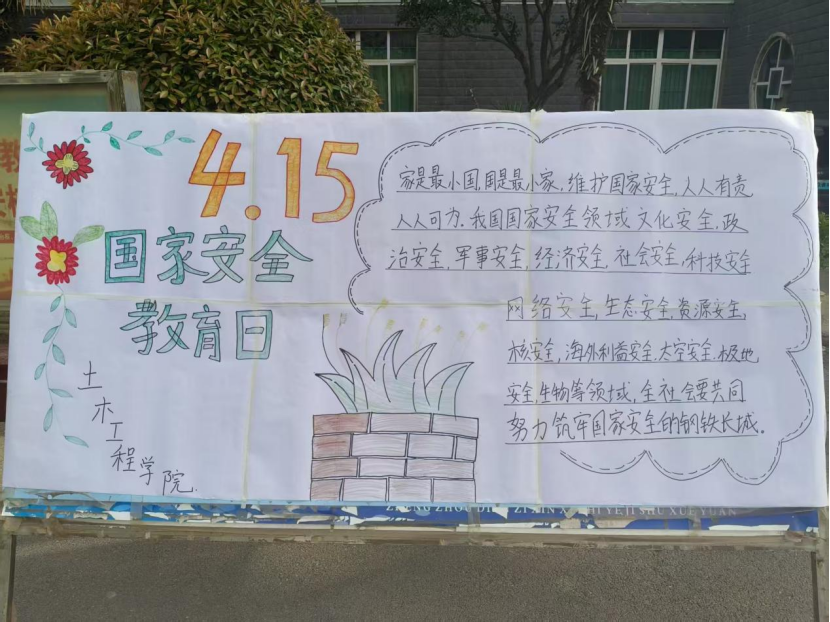 4.15
国家安全
教育日
土木工程学院
家是最小国,国是最小家,维护国家安全,人人有责
人人可为.我国国家安全领域文化安全,政
治安全,军事安全,经济安全,社会安全,科技安全
网络安全,生态安全,资源安全,
核安全,海外利益安全,太空安全.极地
安全,生物等领域,全社会要共同
努力筑牢国家安全的钢铁长城.